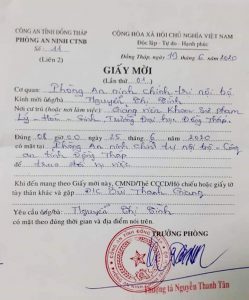 CÔNG AN TỈNH ĐỒNG THÁP
PHÒNG AN NINH CTNB
Số: 11
(Liên 2)
CỘNG HÒA XÃ HỘI CHỦ NGHĨA VIỆT NAM
Độc lập - Tự do - Hạnh phúc
Đồng Tháp, ngày 19 tháng 6 năm 2020
GIẤY MỜI
(Lần thứ: 01)
Cơ quan: Phòng An ninh chính trị nội bộ
Kính mời ông/bà: Nguyễn Thị Bình
Nơi cư trú (hoặc nơi làm việc): Giảng viên khoa Sư phạm
Lý - Hóa - Sinh Trường Đại học Đồng Tháp.
Đúng 08 giờ 00 ngày 25 tháng 6 năm 2020
có mặt tại: Phòng An ninh chính trị nội bộ - Công
an tỉnh Đồng Tháp
để trao đổi vụ việc
Khi đến mang theo Giấy mời này, CMND/Thẻ CCCD/Hộ chiếu hoặc giấy tờ
tùy thân khác và gặp Đ/c Bùi Thanh
Yêu cầu ông/bà: Nguyễn Thị Bình
có mặt theo đúng thời gian và địa điểm nói trên.
TRƯỞNG PHÒNG
Thượng tá Nguyễn Thanh Tân